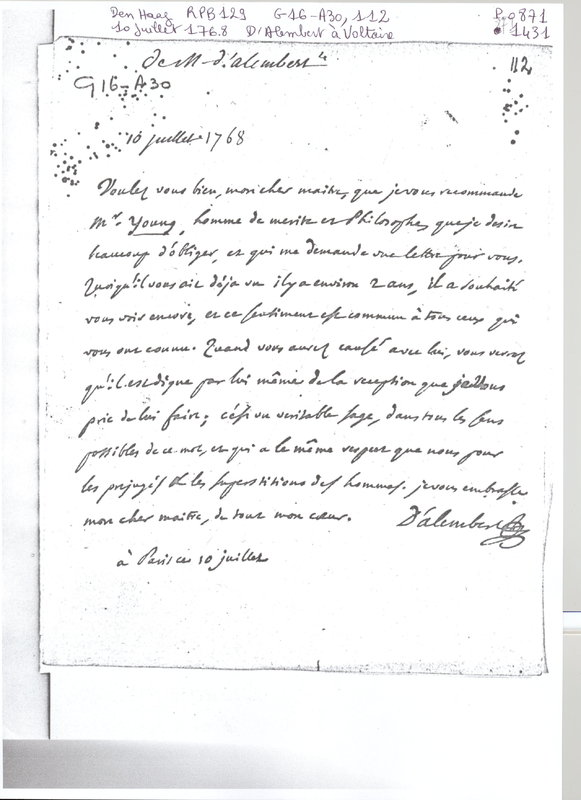 Den Haag RPB129 G16-A30, 112
10 juillet 1768 D'Alembert à Voltaire
P. 0871
1431
de M. d'alembert
112
G16-A30
10 juillet 1768
Voulez vous bien, mon cher maitre, que je vous recommande
Mr. Young, homme de merite et Philosophe, que je desire
beaucoup d'obliger, et qui me demande une lettre pour vous.
Quoiqu'il vous ait déja vu il y a environ 2 ans, il a souhaité
vous voir encore, et ce sentiment est commun à tous ceux qui
vous ont connu. Quand vous aurez causé avec lui, vous verrez
qu'il est digne par lui même de la reception que je vous
prie de lui faire; c'est un veritable sage, dans tous les sens
possibles de ce mot, et qui a le même respect que nous pour
les prejugés et les superstitions des hommes. je vous embrasse
mon cher maitre, de tout mon cœur. D'alembert
à Paris ce 10 juillet